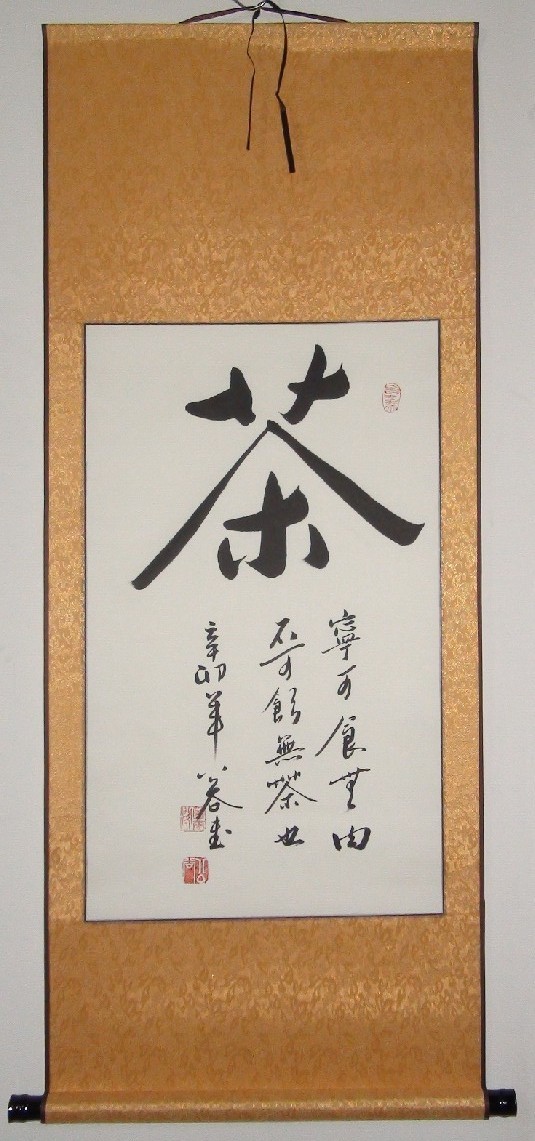 茶
寧可食無肉
不可飲無茶也
辛卯年